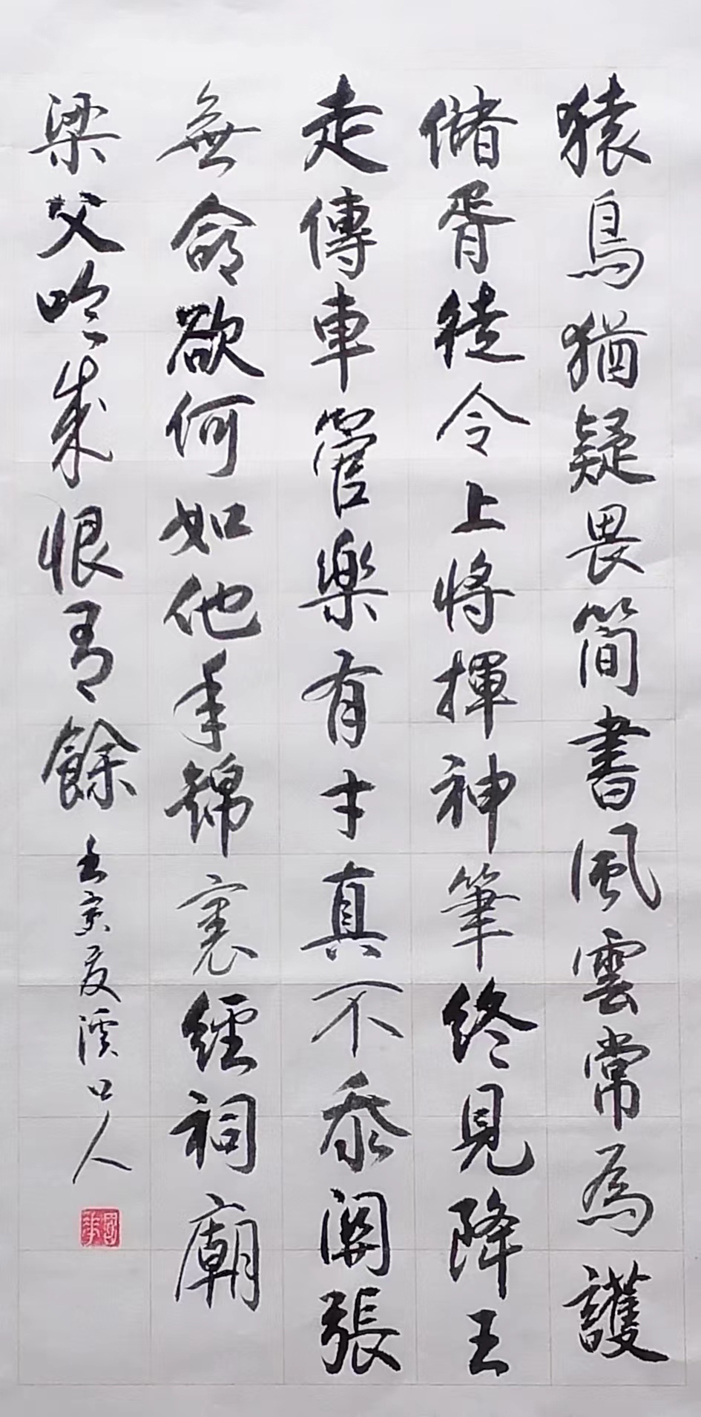 猿鳥猶疑畏簡書風雲常為護
儲胥徒令上將揮神筆終見降王
走傳車管樂有才真不忝關張
無命欲何如他年錦裏經祠廟
梁父吟成恨有餘 壬寅夏溪口人